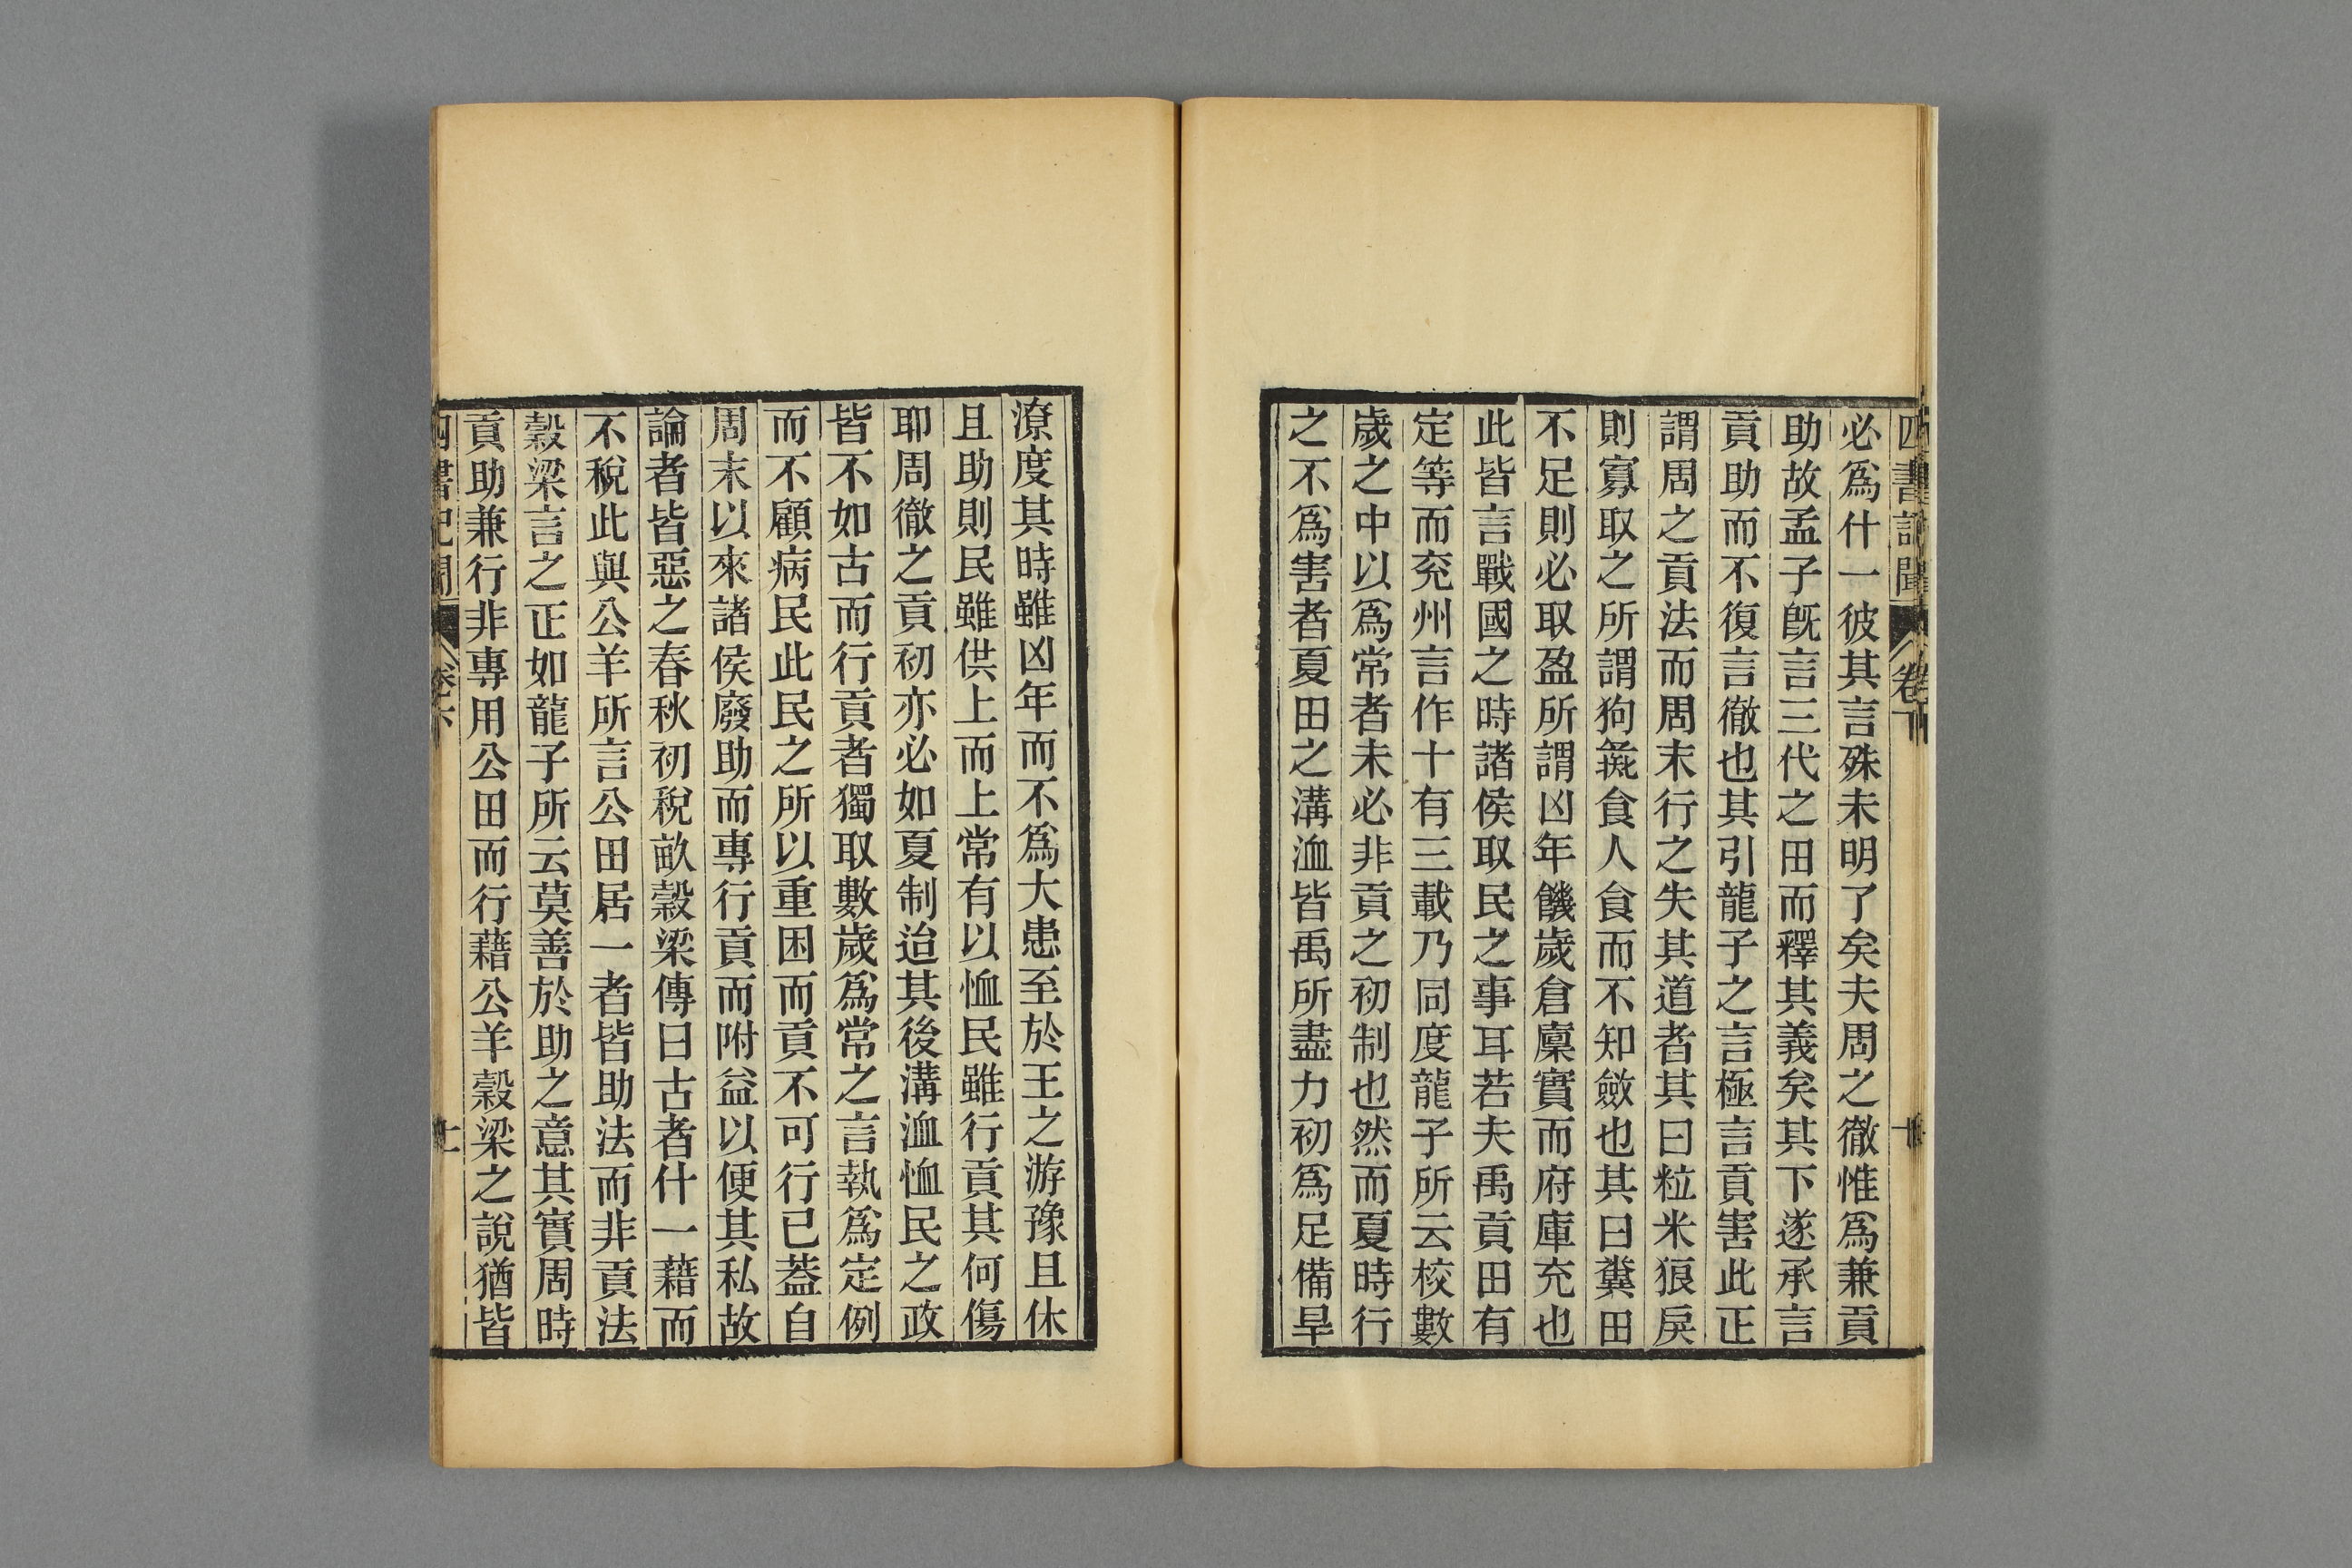 四書記聞 卷下 十
必爲什一彼其言殊未明了矣夫周之徹惟爲兼貢
助故孟子旣言三代之田而釋其義矣其下遂承言
貢助而不復言徹也其引龍子之言極言貢害此正
謂周之貢法而周末行之失其道者其曰粒米狼戾
則寡取之所謂狗彘食人食而不知斂也其曰糞田
不足則必取盈所謂凶年饑歲倉廩實而府庫充也
此皆言戰國之時諸侯取民之事耳若夫禹貢田有
定等而兖州言作十有三載乃同度龍子所云校數
歲之中以爲常者未必非貢之初制也然而夏時行
之不爲害者夏田之溝洫皆禹所盡力初爲足備旱
潦度其時雖凶年而不爲大患至於王之游豫且休
且助則民雖供上而上常有以恤民雖行貢其何傷
耶周徹之貢初亦必如夏制迨其後溝洫恤民之政
皆不如古而行貢者獨取數歲爲常之言執爲定例
而不顧病民此民之所以重困而貢不可行已葢自
周末以來諸侯廢助而專行貢而附益以便其私故
論者皆惡之春秋初稅畝穀梁傳曰古者什一藉而
不稅此與公羊所言公田居一者皆助法而非貢法
穀梁言之正如龍子所云莫善於助之意其實周時
貢助兼行非專用公田而行藉公羊穀梁之說猶皆
四書記聞 卷下